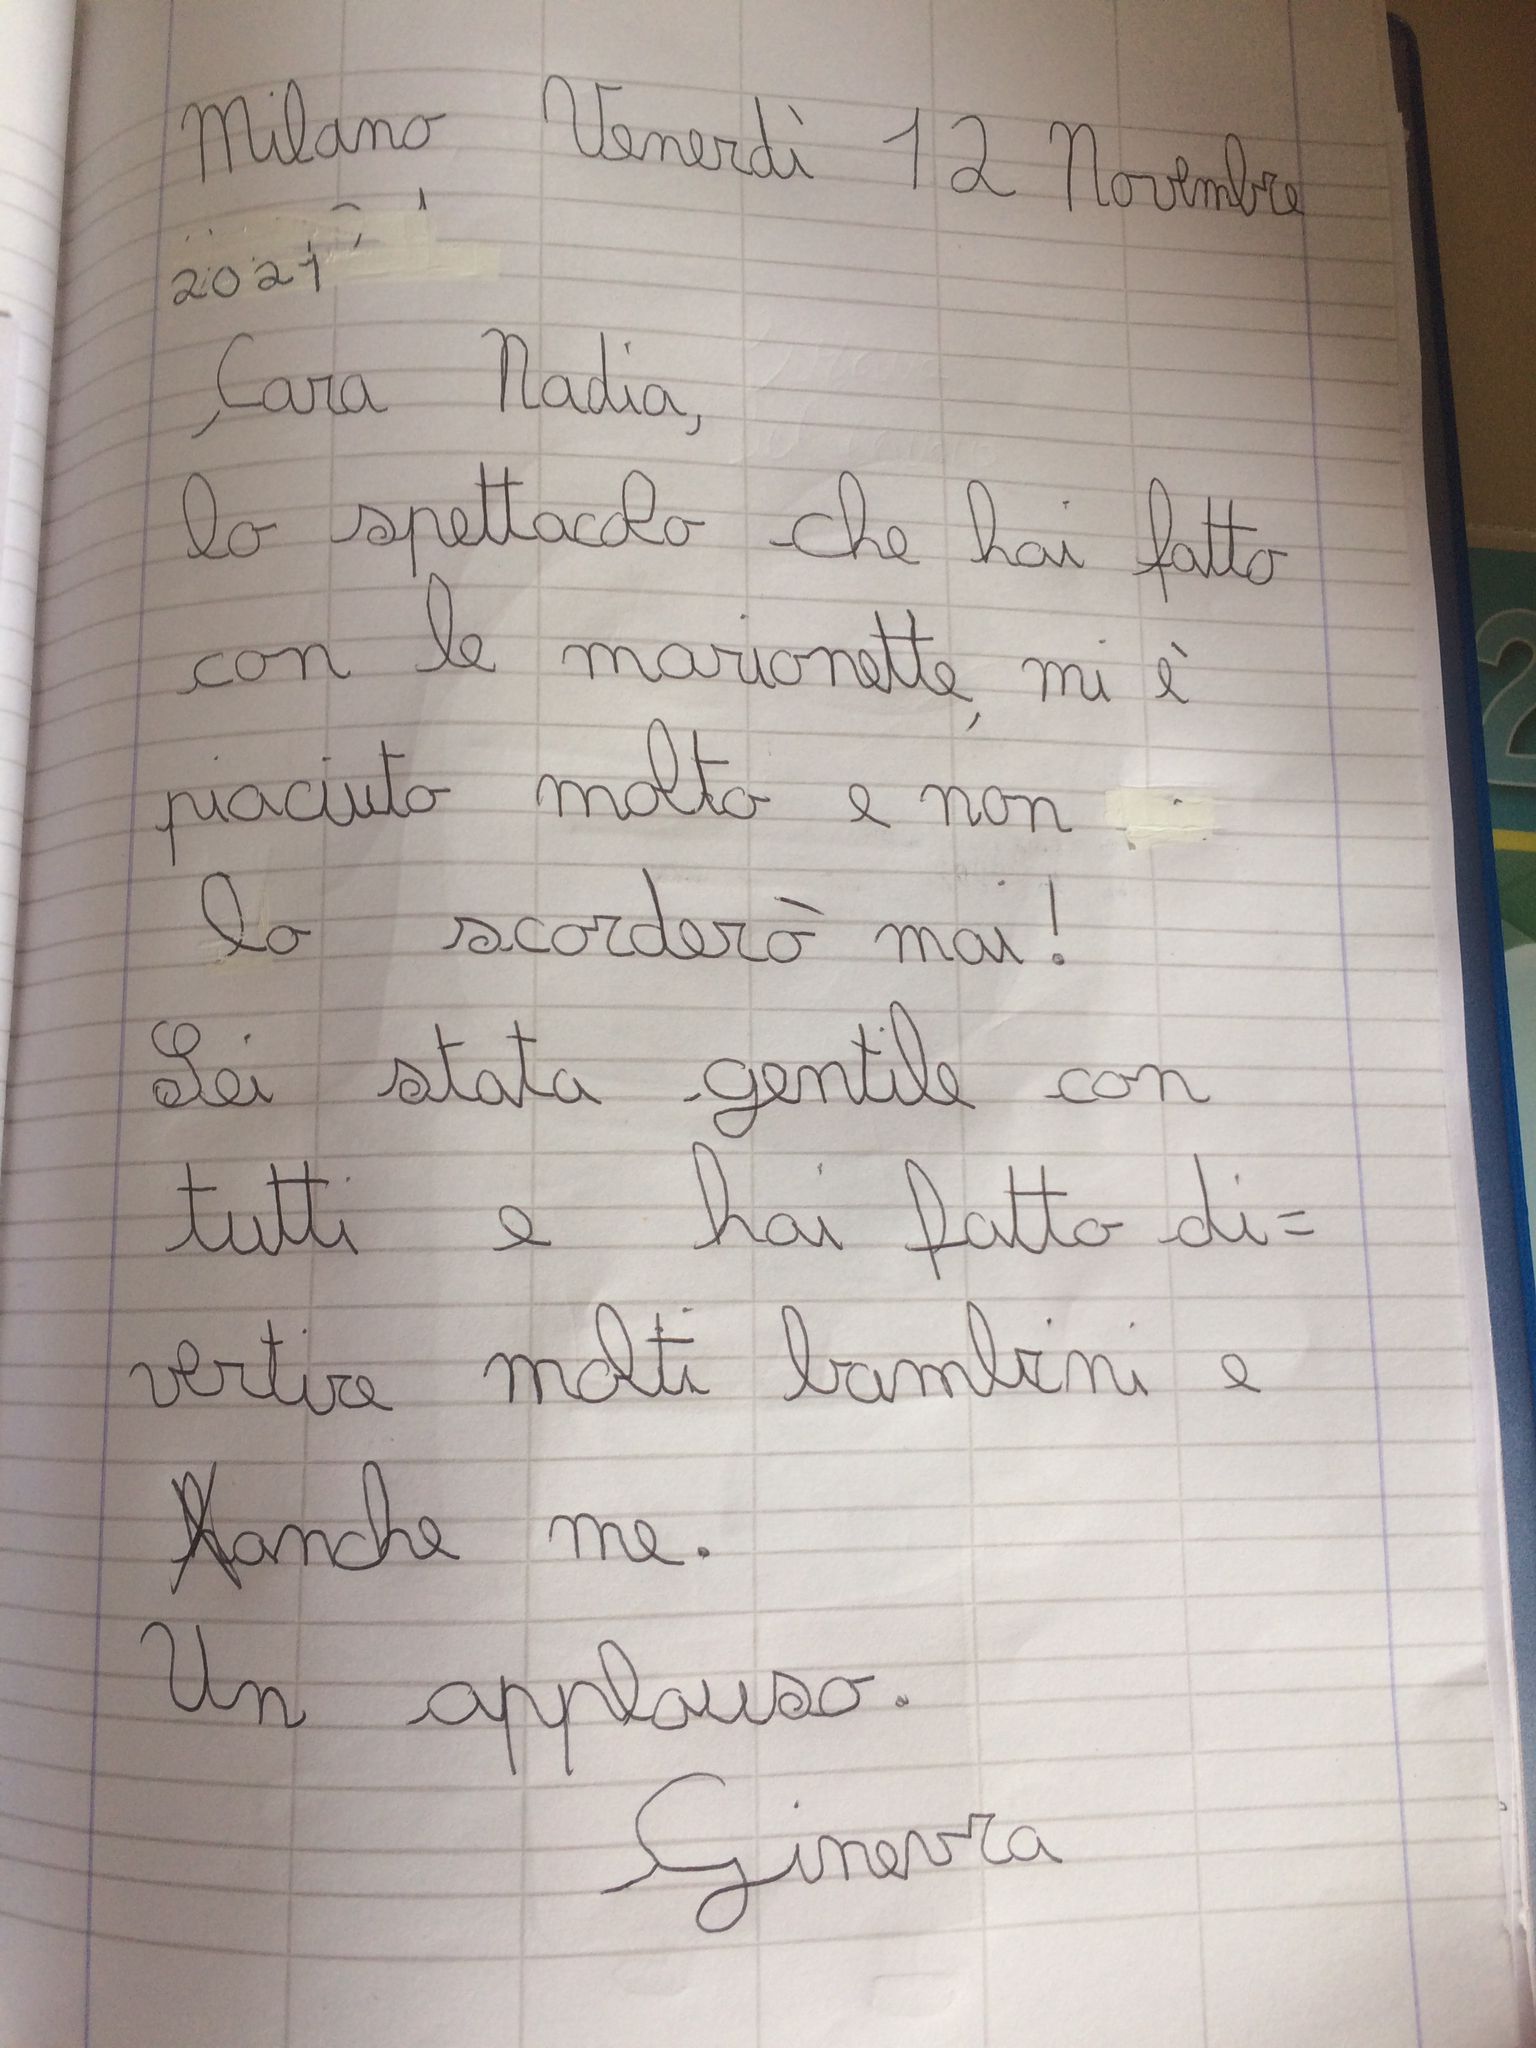 Milano Venerdì 12 Novembre
2021
Cara Nadia,
lo spettacolo che hai fatto
con le marionette, mi è
piaciuto molto e non
lo scorderò mai!
Sei stata gentile con
tutti e hai fatto di=
vertire molti bambini e
anche me.
Un applauso.
Ginevra
2